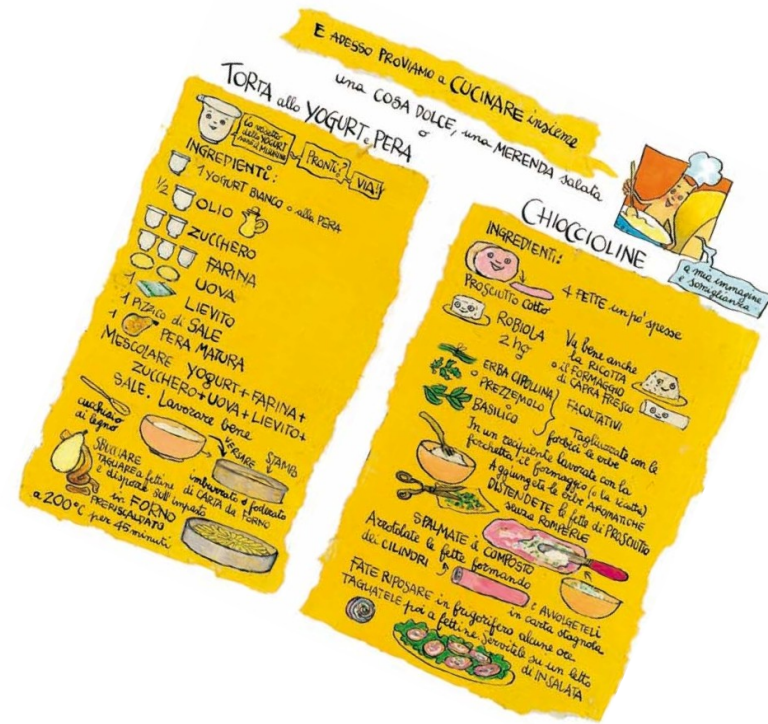 E ADESSO PROVIAMO a CUCINARE insieme
una COSA DOLCE, una MERENDA salata
o
TORTA allo YOGURT e PERA
Lo vasetto
dello YOGURT
PRONTI?
VIA!
INGREDIENTI:
1 YOGURT BIANCO o alla PERA
1/2 OLIO
ZUCCHERO
FARINA
UOVA
1 LIEVITO
1 PIZZICO di SALE
1 PERA MATURA
MESCOLARE YOGURT + FARINA +
ZUCCHERO + UOVA + LIEVITO +
SALE. Lavorare bene
cucchiaio
di legno
VERSARE
STAMPO
imburrato o foderato
di CARTA da FORNO
SBUCCIARE
TAGLIARE a fettine
e disporle sull'impasto
in FORNO
PRERISCALDATO
a 200°C per 45 minuti
CHIOCCIOLINE
a mia immagine
e somiglianza
INGREDIENTI:
4 FETTE un po' spesse
PROSCIUTTO COTTO
ROBIOLA
2 hg
Va bene anche
la RICOTTA
o il FORMAGGIO
di CAPRA FRESCO
ERBA CIPOLLINA
o PREZZEMOLO
BASILICO
FACOLTATIVI
Tagliuzzate con le
forbici le erbe
In un recipiente lavorate con la
forchetta il formaggio (o la ricotta)
Aggiungete le erbe AROMATICHE
DISTENDETE le fette di PROSCIUTTO
senza ROMPERLE
SPALMATE il COMPOSTO
Arrotolate le fette formando
dei CILINDRI
e AVVOLGETELI
in carta stagnola
FATE RIPOSARE in frigorifero alcune ore.
TAGLIATELE poi a fettine. Servitele su un letto
di INSALATA